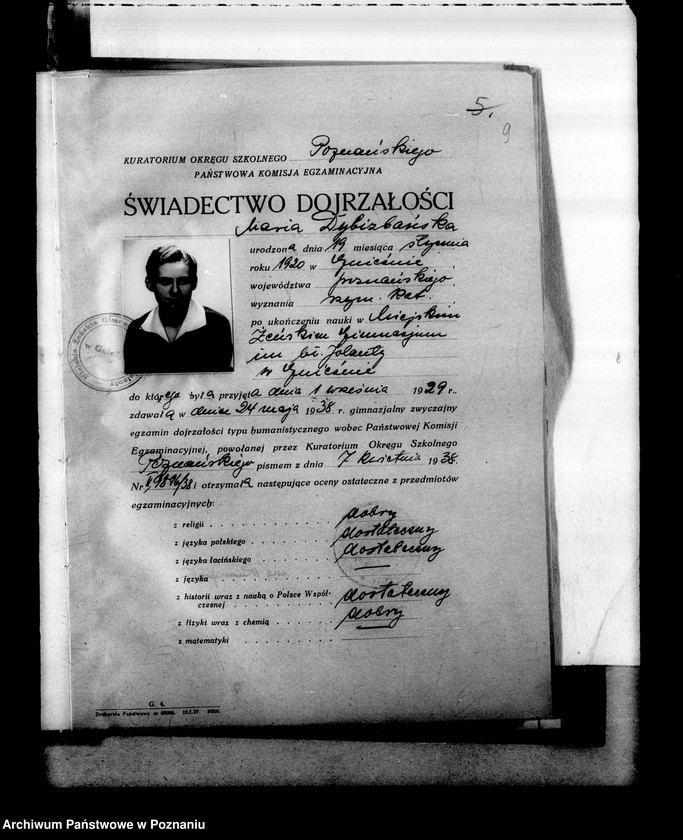 5.
9
KURATORIUM OKRĘGU SZKOLNEGO Poznańskiego
PAŃSTWOWA KOMISJA EGZAMINACYJNA
ŚWIADECTWO DOJRZAŁOŚCI
Maria Dybizbańska
urodzona dnia 19 miesiąca stycznia
roku 1920 w Gnieźnie
województwa poznańskiego
wyznania rzym. kat.
po ukończeniu nauki w Miejskim
Żeńskim Gimnazjum
im bł. Jolanty
w Gnieźnie
do którego była przyjęta dnia 1 września 1929 r.,
zdawała w dniu 24 maja 1938 r. gimnazjalny zwyczajny
egzamin dojrzałości typu humanistycznego wobec Państwowej Komisji
Egzaminacyjnej, powołanej przez Kuratorium Okręgu Szkolnego
Poznańskiego pismem z dnia 7 kwietnia 1938.
Nr II/9896/38 i otrzymała następujące oceny ostateczne z przedmiotów
egzaminacyjnych:
z religii dobry
z języka polskiego dostateczny
z języka łacińskiego dostateczny
z języka —
z historii wraz z nauką o Polsce Współ-
czesnej dostateczny
z fizyki wraz z chemią dobry
z matematyki —
G. 4.
Drukarnia Państwowa
Archiwum Państwowe w Poznaniu